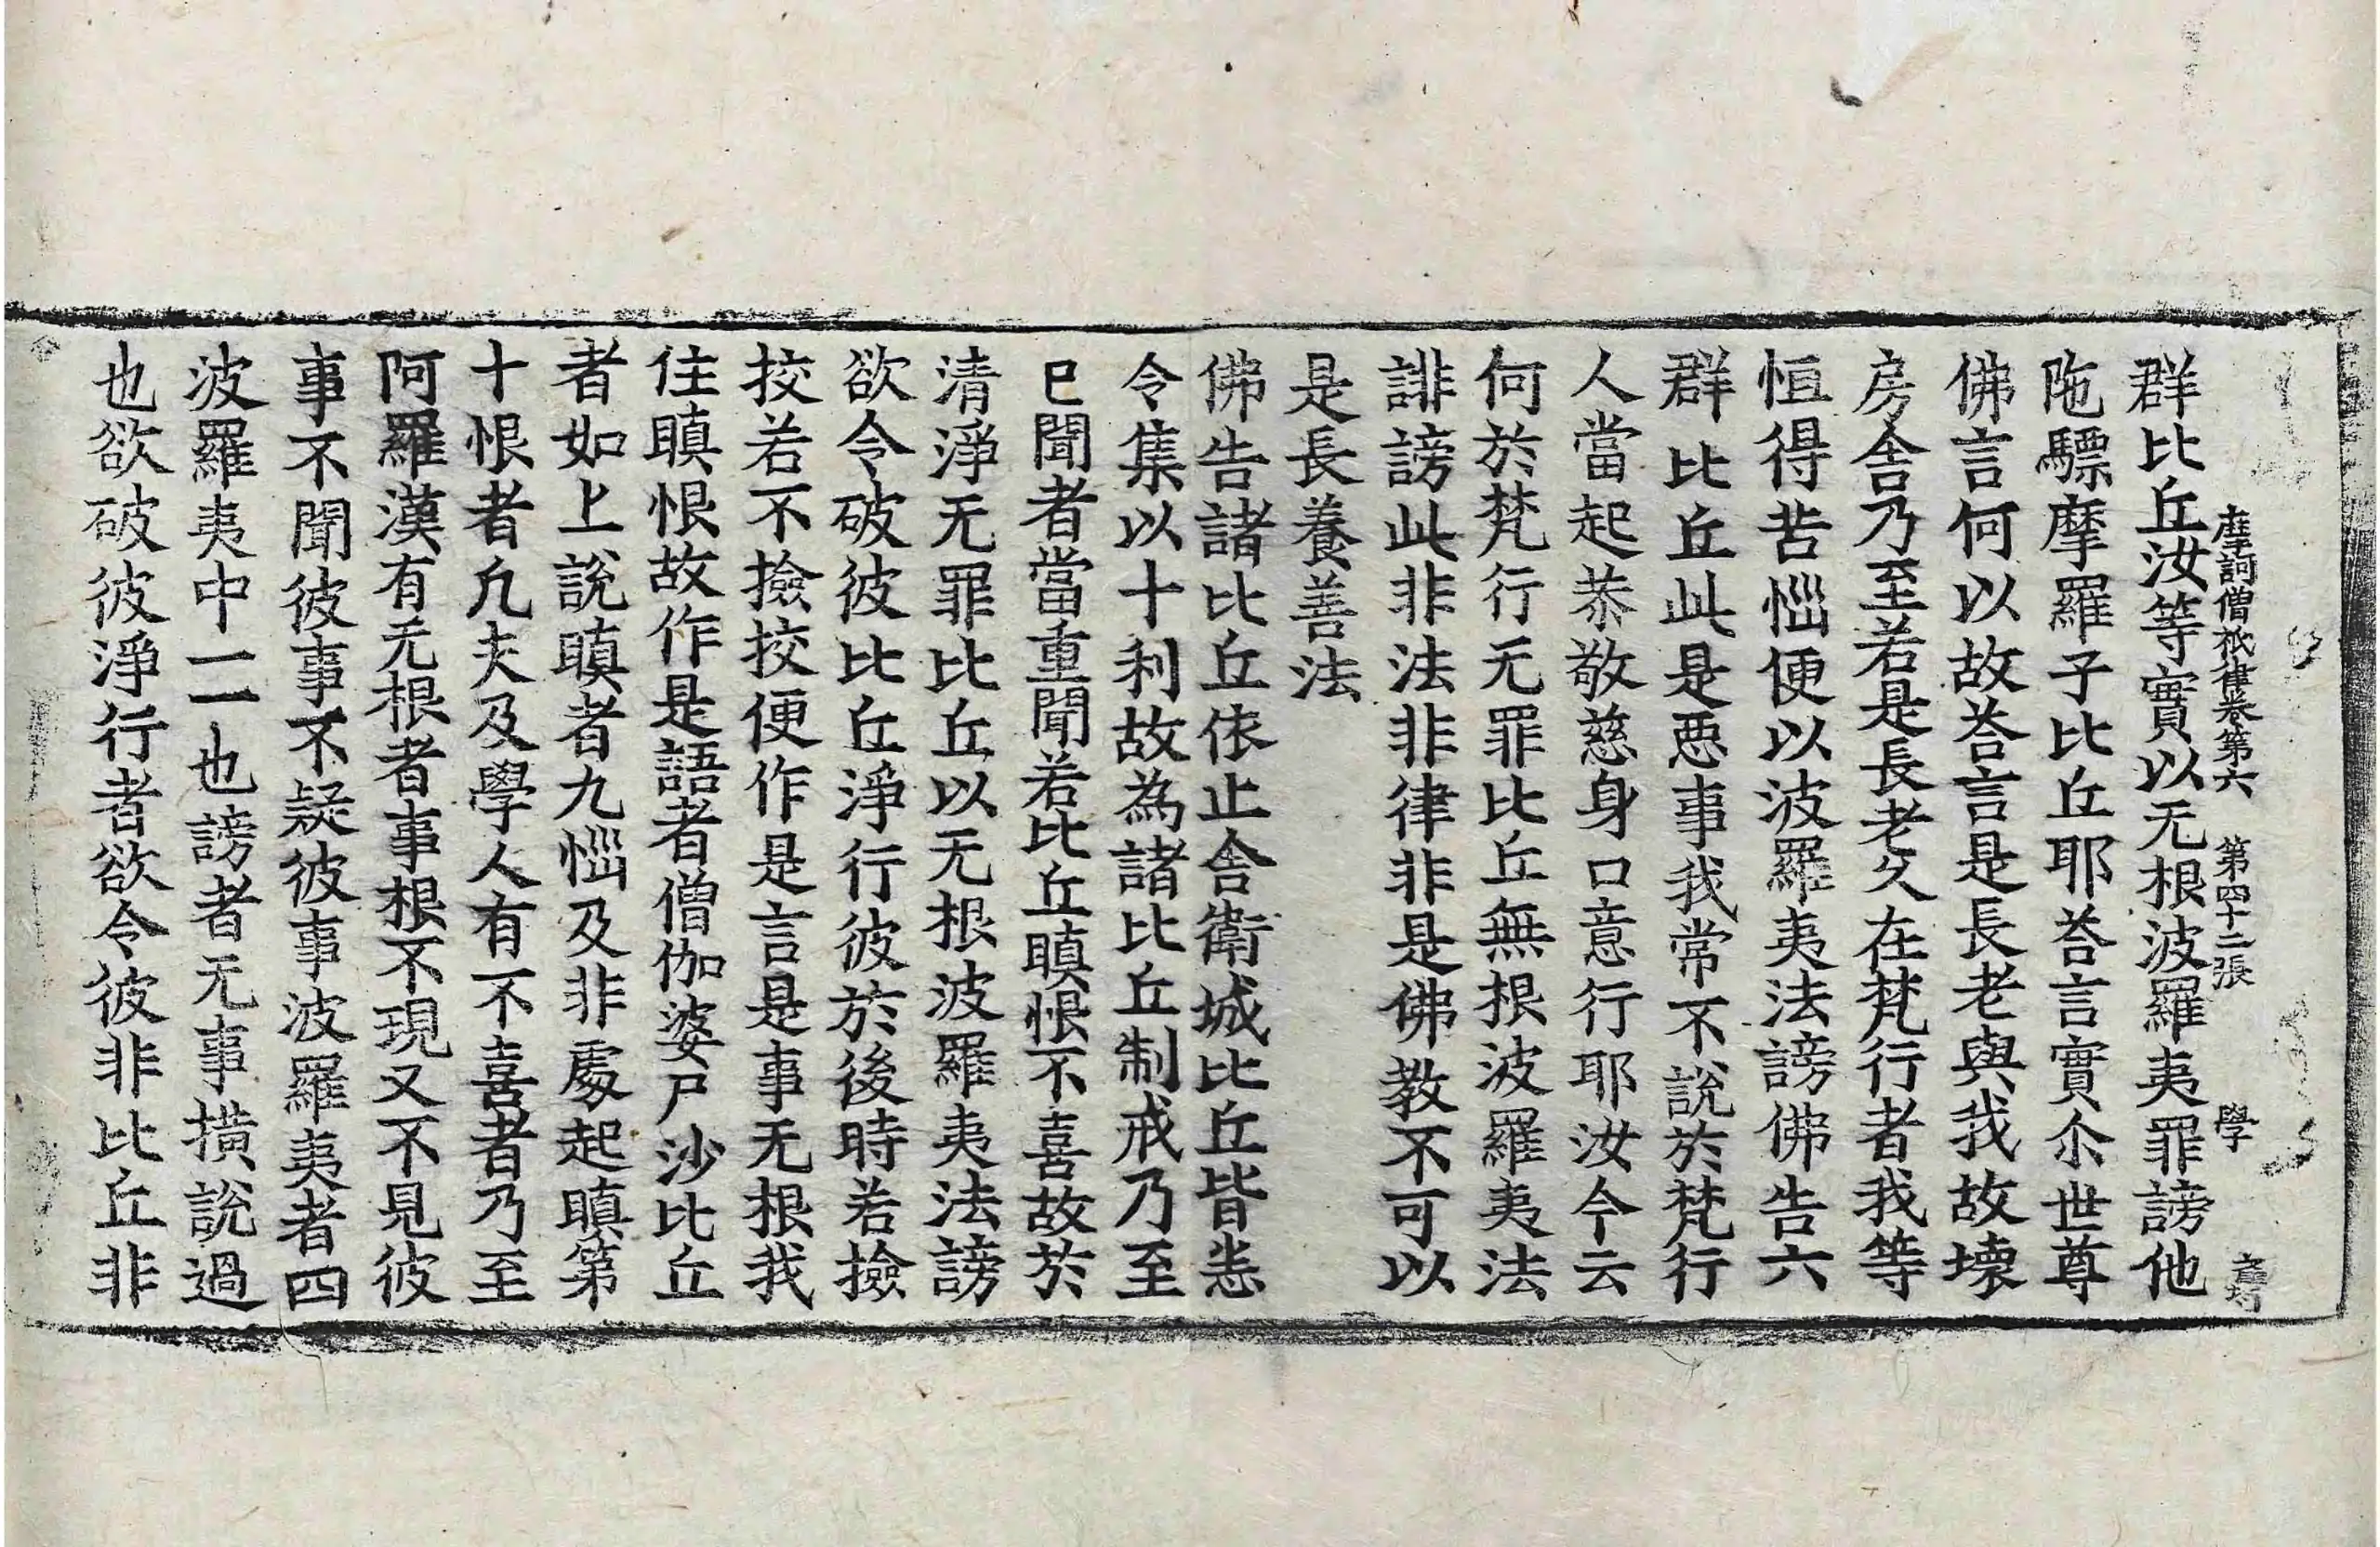 摩訶僧祇律卷第六　第四十二張　學
群比丘汝等實以无根波羅夷罪謗他
陁驃摩羅子比丘耶荅言實尒世尊
佛言何以故荅言是長老與我故壞
房舍乃至若是長老久在梵行者我等
恒得苦惱便以波羅夷法謗佛告六
群比丘此是惡事我常不說於梵行
人當起恭敬慈身口意行耶汝今云
何於梵行无罪比丘無根波羅夷法
誹謗此非法非律非是佛教不可以
是長養善法
佛告諸比丘依止舍衛城比丘皆悉
令集以十利故為諸比丘制戒乃至
已聞者當重聞若比丘瞋恨不喜故於
清淨无罪比丘以无根波羅夷法謗
欲令破彼比丘淨行彼於後時若撿
挍若不撿挍便作是言是事无根我
住瞋恨故作是語者僧伽婆尸沙比丘
者如上說瞋者九惱及非處起瞋第
十恨者凢夫及學人有不喜者乃至
阿羅漢有无根者事根不現又不見彼
事不聞彼事不疑彼事波羅夷者四
波羅夷中一一也謗者无事撗說過
也欲破彼淨行者欲令彼非比丘非